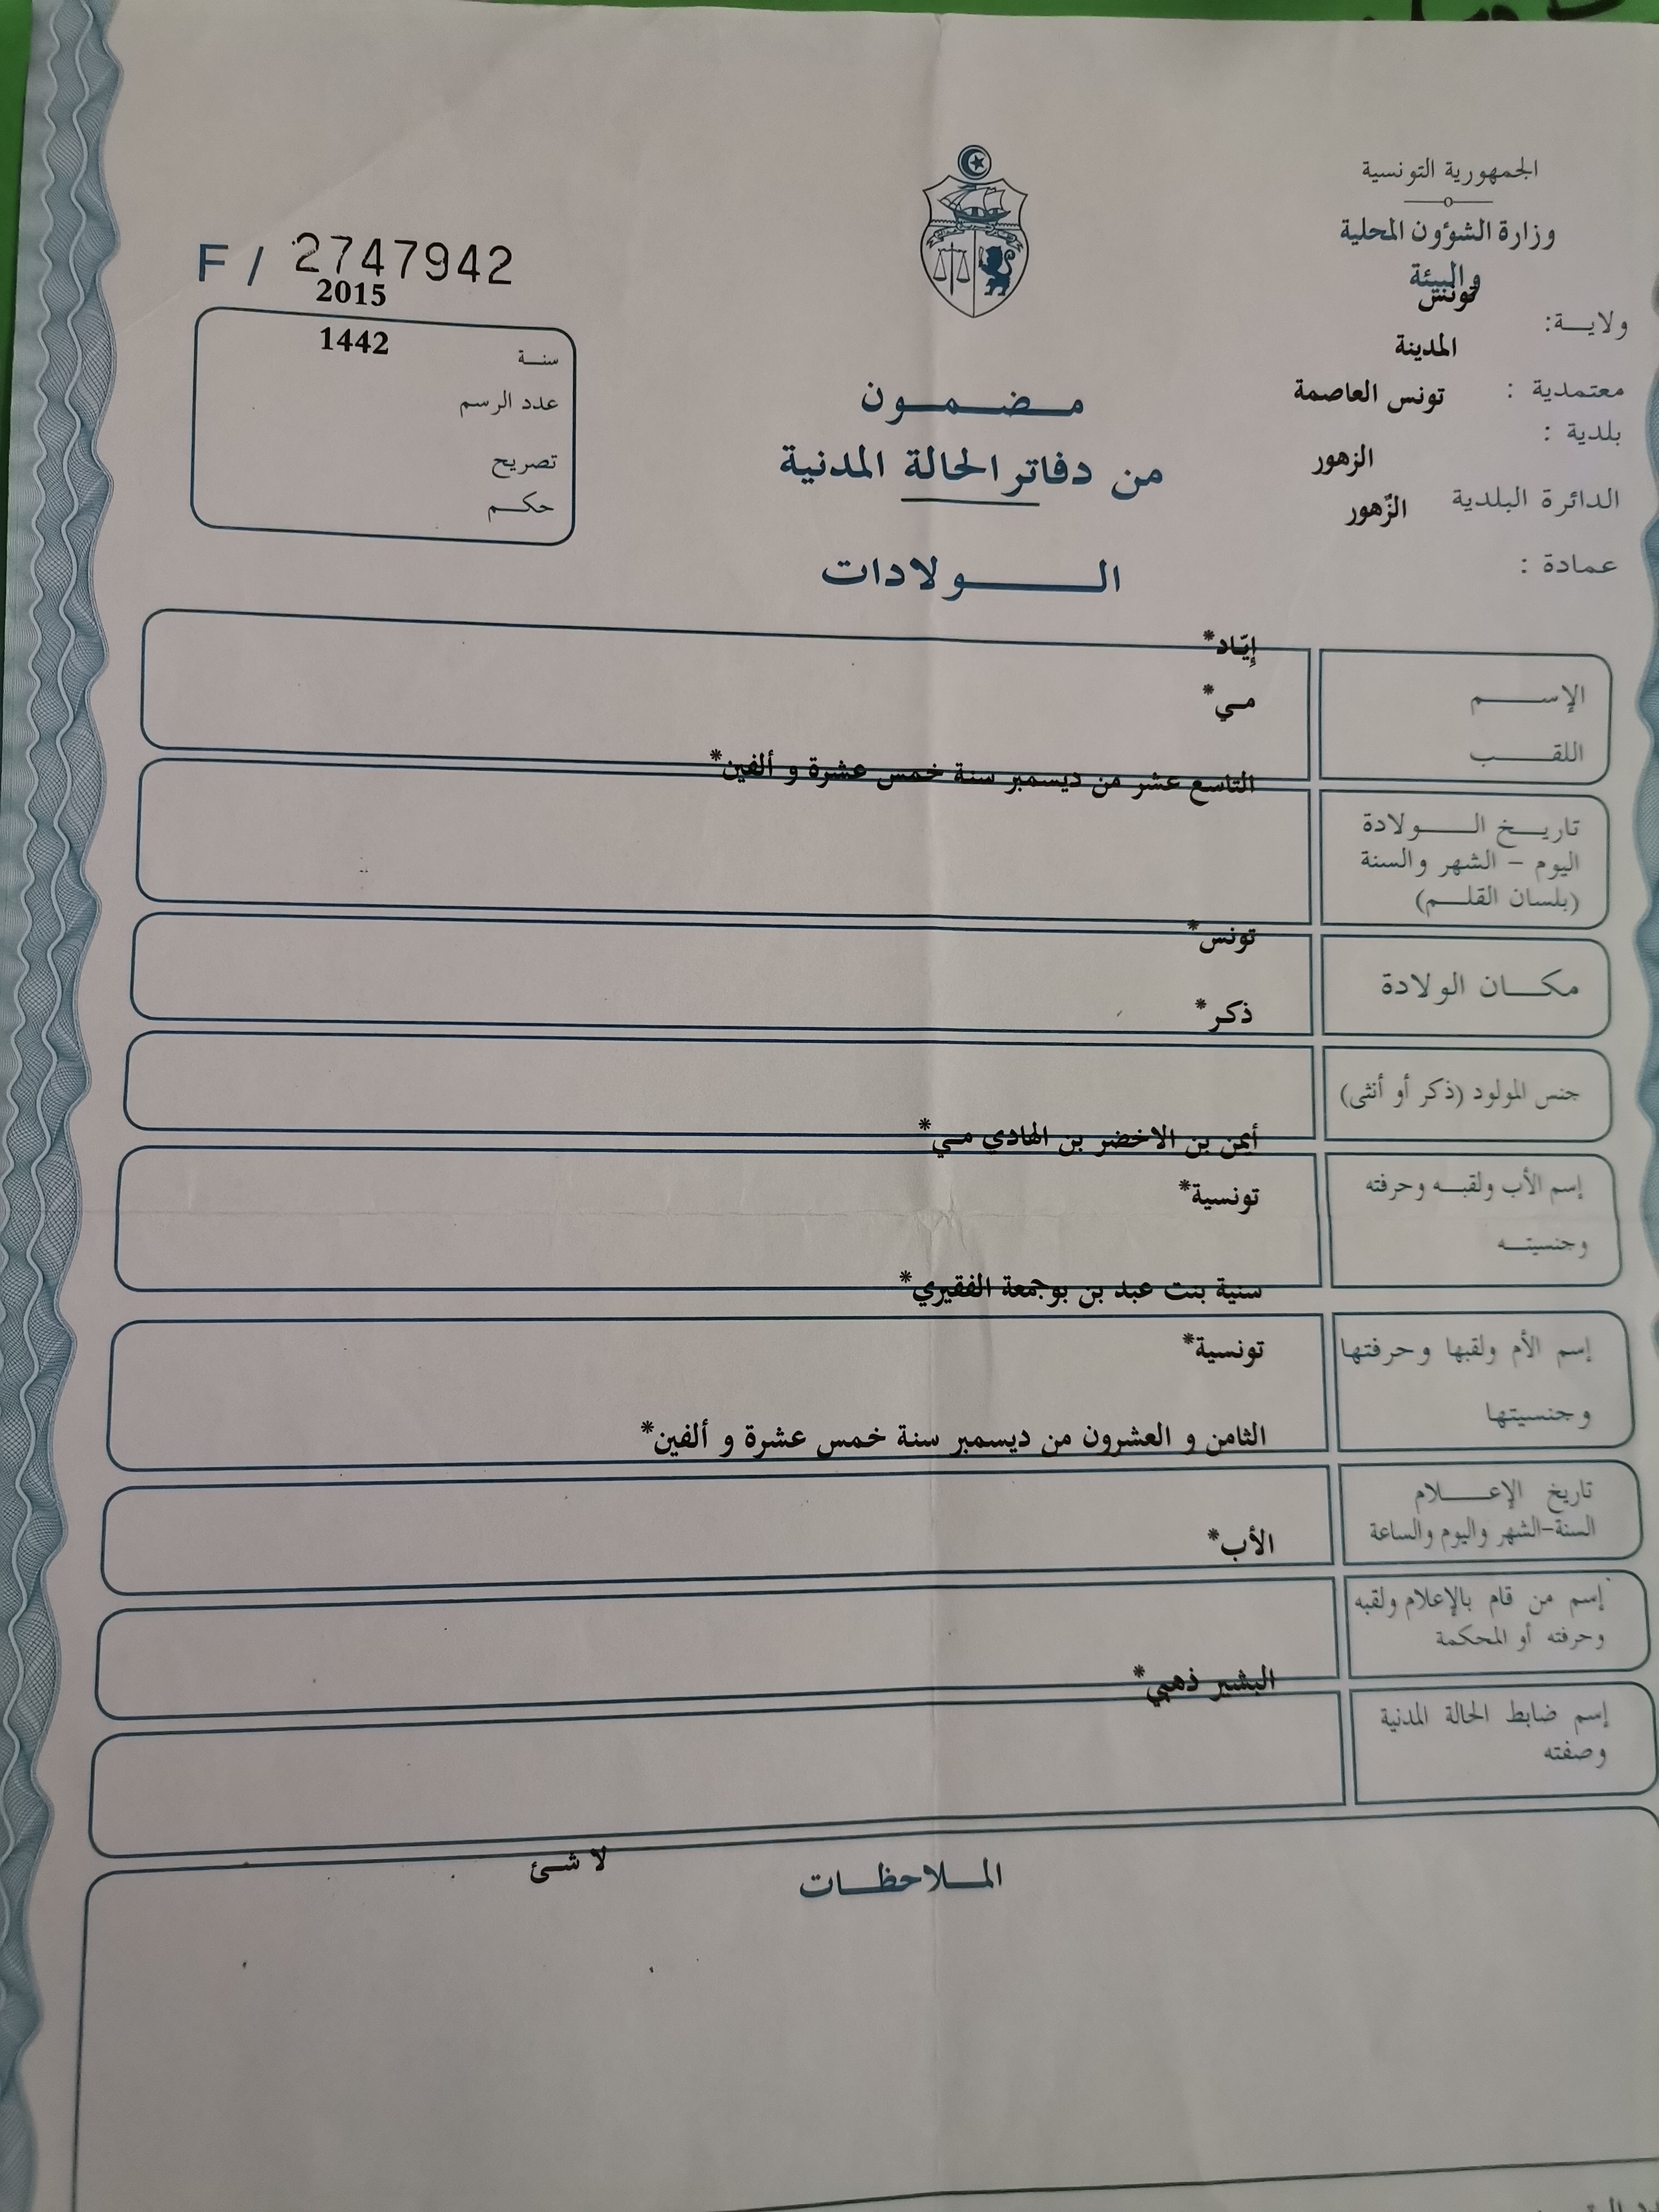 الجمهورية التونسية
وزارة الشؤون المحلية
والبيئة
ولايـــة: تونس
معتمدية : المدينة
بلدية : تونس العاصمة
الدائرة البلدية الزهور
عمادة : الزّهور
F / 2747942
سنـة 2015
عدد الرسم 1442
تصريح
حكـــم
مـــضـــمـــون
من دفاتر الحالة المدنية
الـــــولادات
الإســـــم إيّاد*
اللقـــــب مي*
تاريـــخ الـــــولادة التاسع عشر من ديسمبر سنة خمس عشرة و ألفين*
اليوم – الشهر والسنة
(بلسان القلـــم)
مكـــان الولادة تونس*
جنس المولود (ذكر أو أنثى) ذكر*
إسم الأب ولقبـــه وحرفته أيمن بن الاخضر بن الهادي مي*
وجنسيتـــه تونسية*
إسم الأم ولقبها وحرفتها سنية بنت عبد بن بوجمعة الفقيري*
وجنسيتها تونسية*
تاريخ الإعـــــلام الثامن و العشرون من ديسمبر سنة خمس عشرة و ألفين*
السنة-الشهر واليوم والساعة
إسم من قام بالإعلام ولقبه الأب*
وحرفته أو المحكمة
إسم ضابط الحالة المدنية البشير ذهبي*
وصفته
المـــلاحظـــات لا شئ